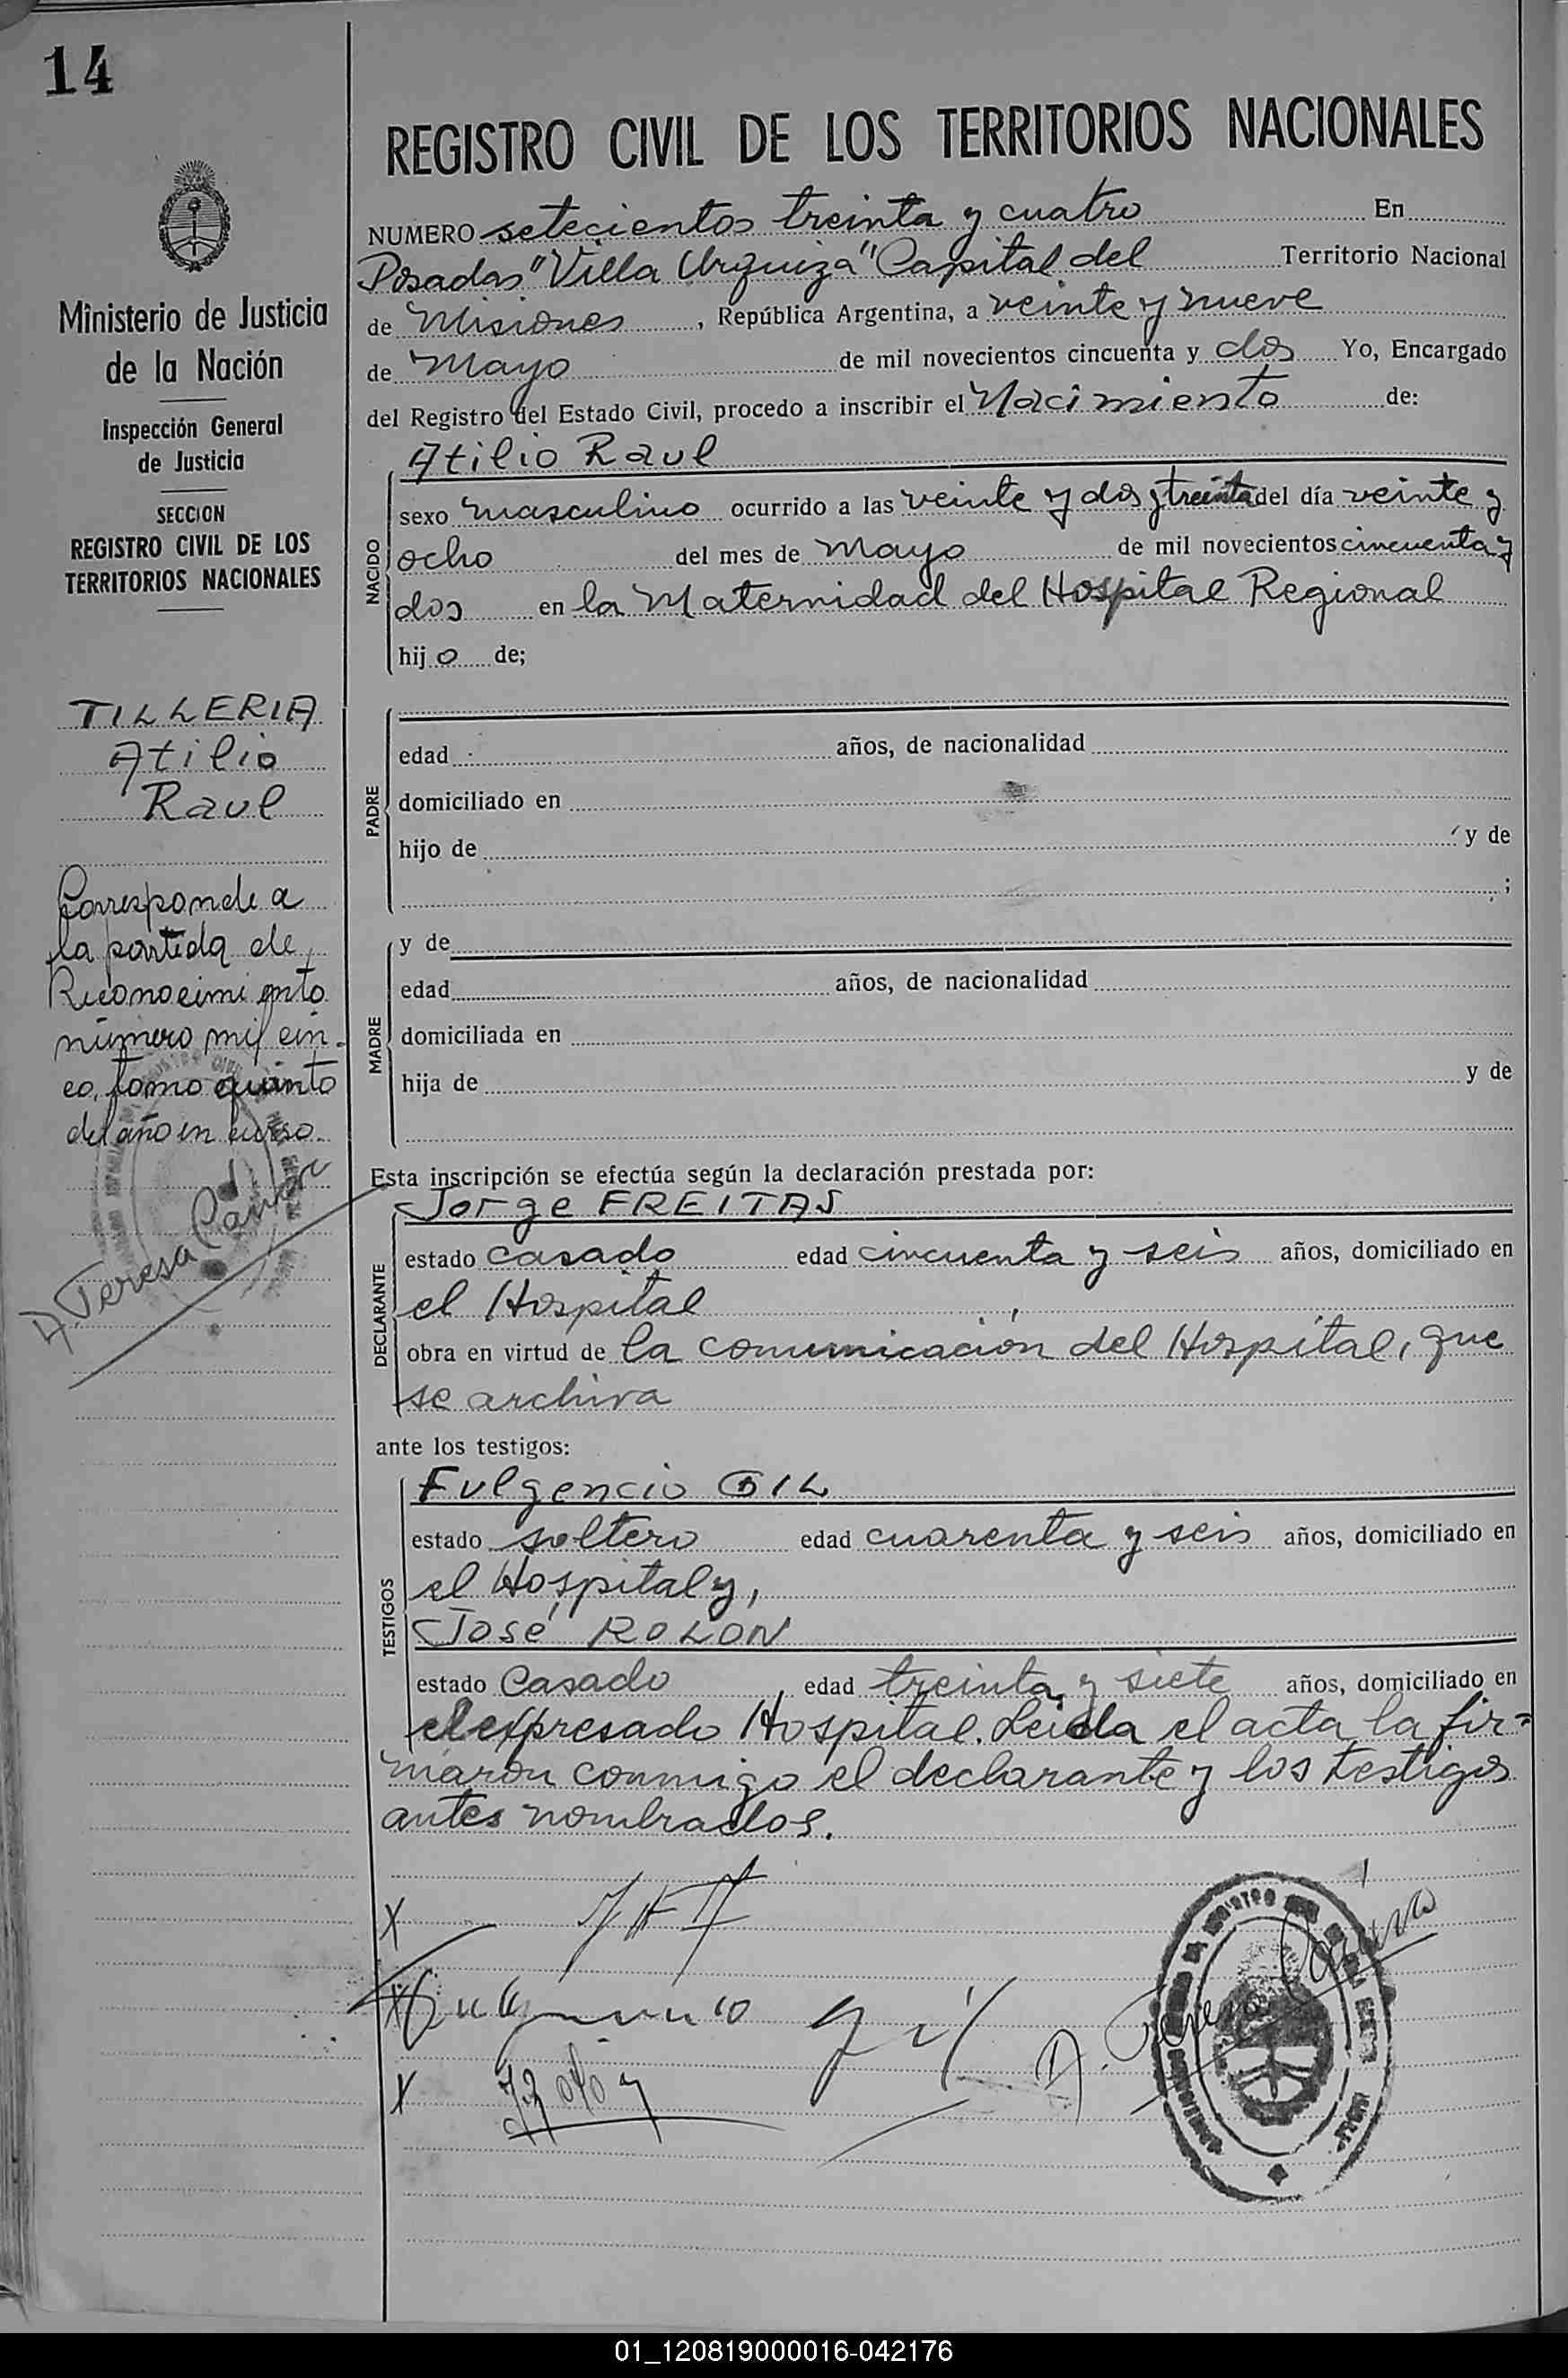 14
Ministerio de Justicia
de la Nación
Inspección General
de Justicia
SECCION
REGISTRO CIVIL DE LOS
TERRITORIOS NACIONALES
TILLERIA
Atilio
Raul
Corresponde a
la partida de
Reconocimiento
número mil cin-
co, tomo quinto
del año en curso.
REGISTRO CIVIL DE LOS TERRITORIOS NACIONALES
NUMERO setecientos treinta y cuatro En
Posadas "Villa Urquiza" Capital del Territorio Nacional
de Misiones, República Argentina, a veinte y nueve
de Mayo de mil novecientos cincuenta y dos Yo, Encargado
del Registro del Estado Civil, procedo a inscribir el Nacimiento de:
Atilio Raul
NACIDO
sexo masculino ocurrido a las veinte y dos y treinta del día veinte y
ocho del mes de Mayo de mil novecientos cincuenta y
dos en la Maternidad del Hospital Regional
hijo de;
PADRE
edad años, de nacionalidad
domiciliado en
hijo de y de
;
MADRE
y de
edad años, de nacionalidad
domiciliada en
hija de y de
Esta inscripción se efectúa según la declaración prestada por:
Jorge FREITAS
DECLARANTE
estado casado edad cincuenta y seis años, domiciliado en
el Hospital
obra en virtud de la comunicación del Hospital, que
se archiva
ante los testigos:
Fulgencio GIL
TESTIGOS
estado soltero edad cuarenta y seis años, domiciliado en
el Hospital y,
José ROLON
estado Casado edad treinta y siete años, domiciliado en
el expresado Hospital. Leida el acta la fir=
maron conmigo el declarante y los testigos
antes nombrados.
X
X
gil
X
01_120819000016-042176